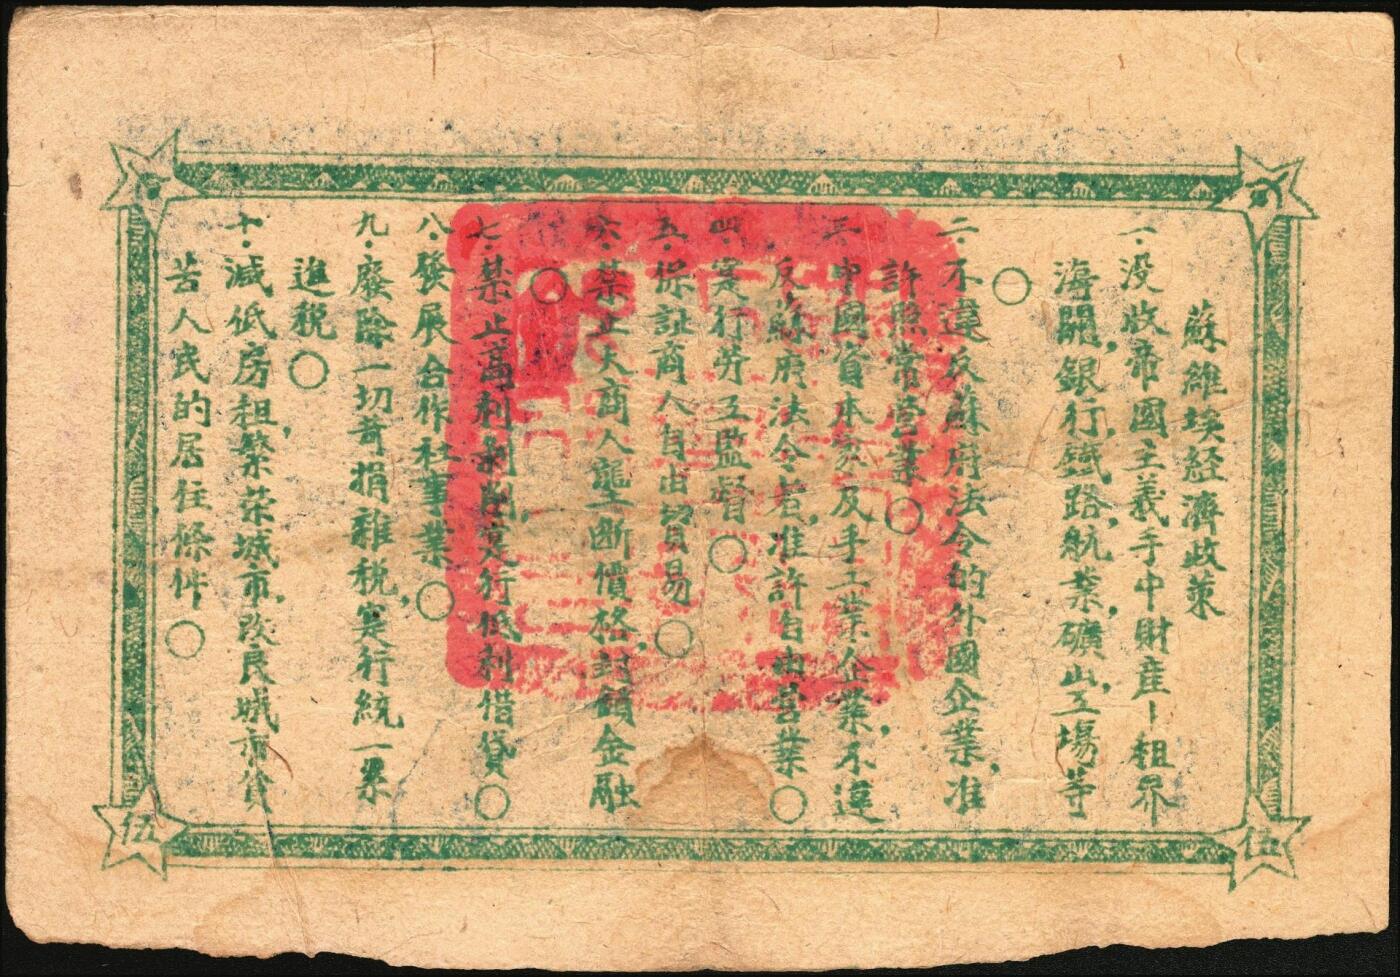 蘇維埃經濟政策
一.没收帝國主義手中財産—租界
海關,銀行,鉄路,航業,礦山,工場等
〇
二.不違反蘇府法令的外國企業,准
許照常营業〇
三.中國資本家及手工業企業,不違
反蘇府法令者,准許自由营業〇
四.实行劳工監督〇
五.保証商人自由貿易〇
六.禁止大商人壟断價格,封鎖金融
〇
七.禁止高利剥削,实行低利借貸〇
八.發展合作社事業〇
九.廢除一切苛捐雜税,实行統一累
進税〇
十.減低房租,繁荣城市,改良城市貧
苦人民的居住條件〇
伍
伍